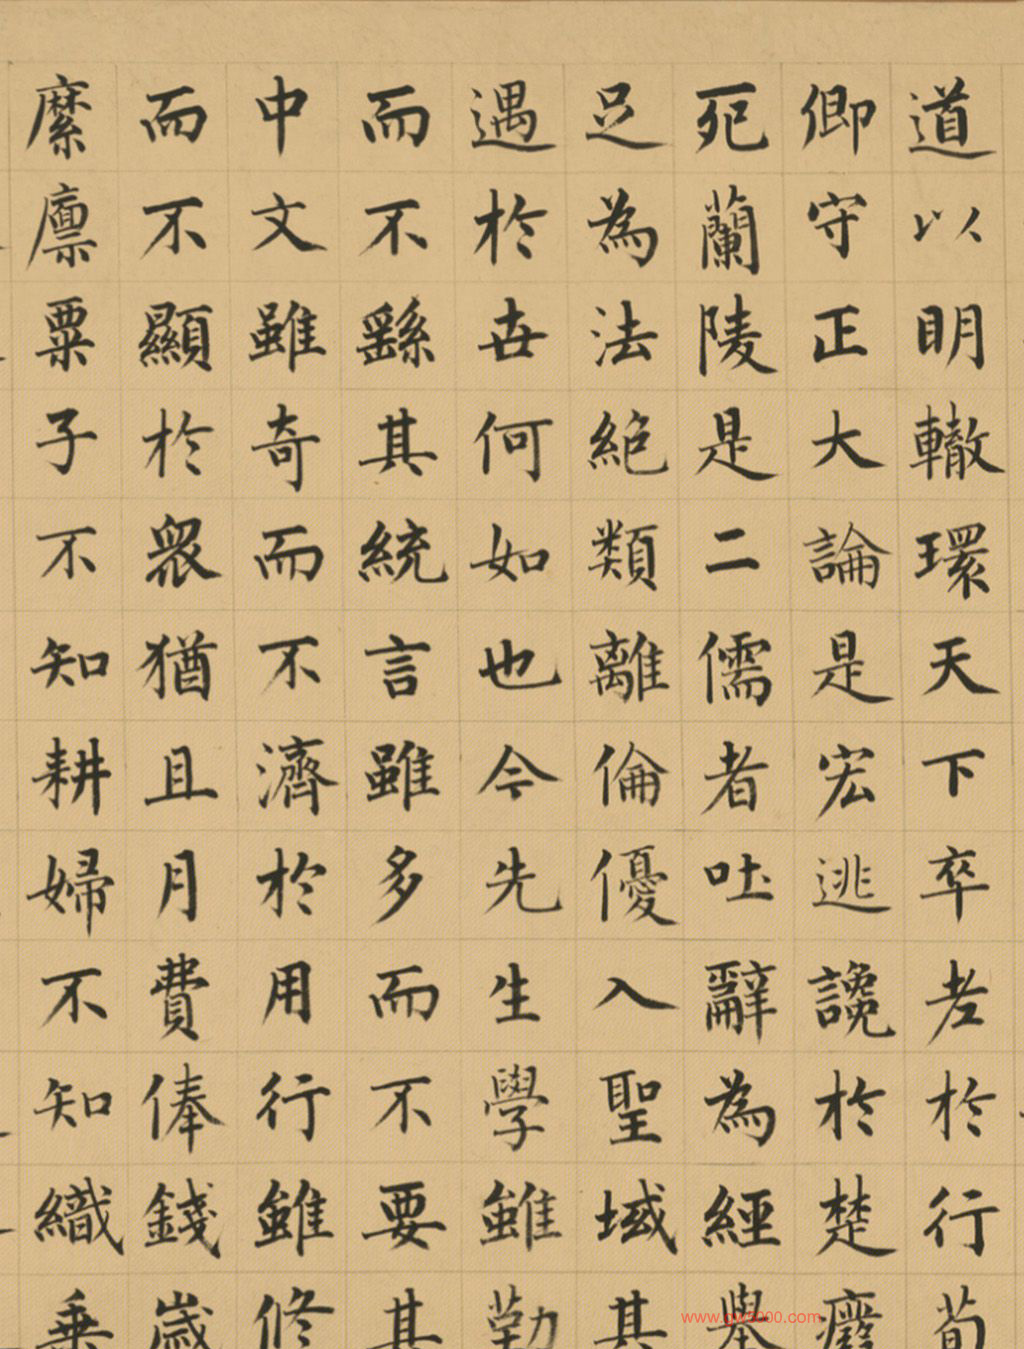 道以明轍環天下卒老於行荀
卿守正大論是宏逃讒於楚廢
死蘭陵是二儒者吐辭為經舉
足為法絕類離倫優入聖域其
遇於世何如也今先生學雖勤
而不繇其統言雖多而不要其
中文雖奇而不濟於用行雖修
而不顯於眾猶且月費俸錢歲
縻廩粟子不知耕婦不知織乗
www.gw5000.com